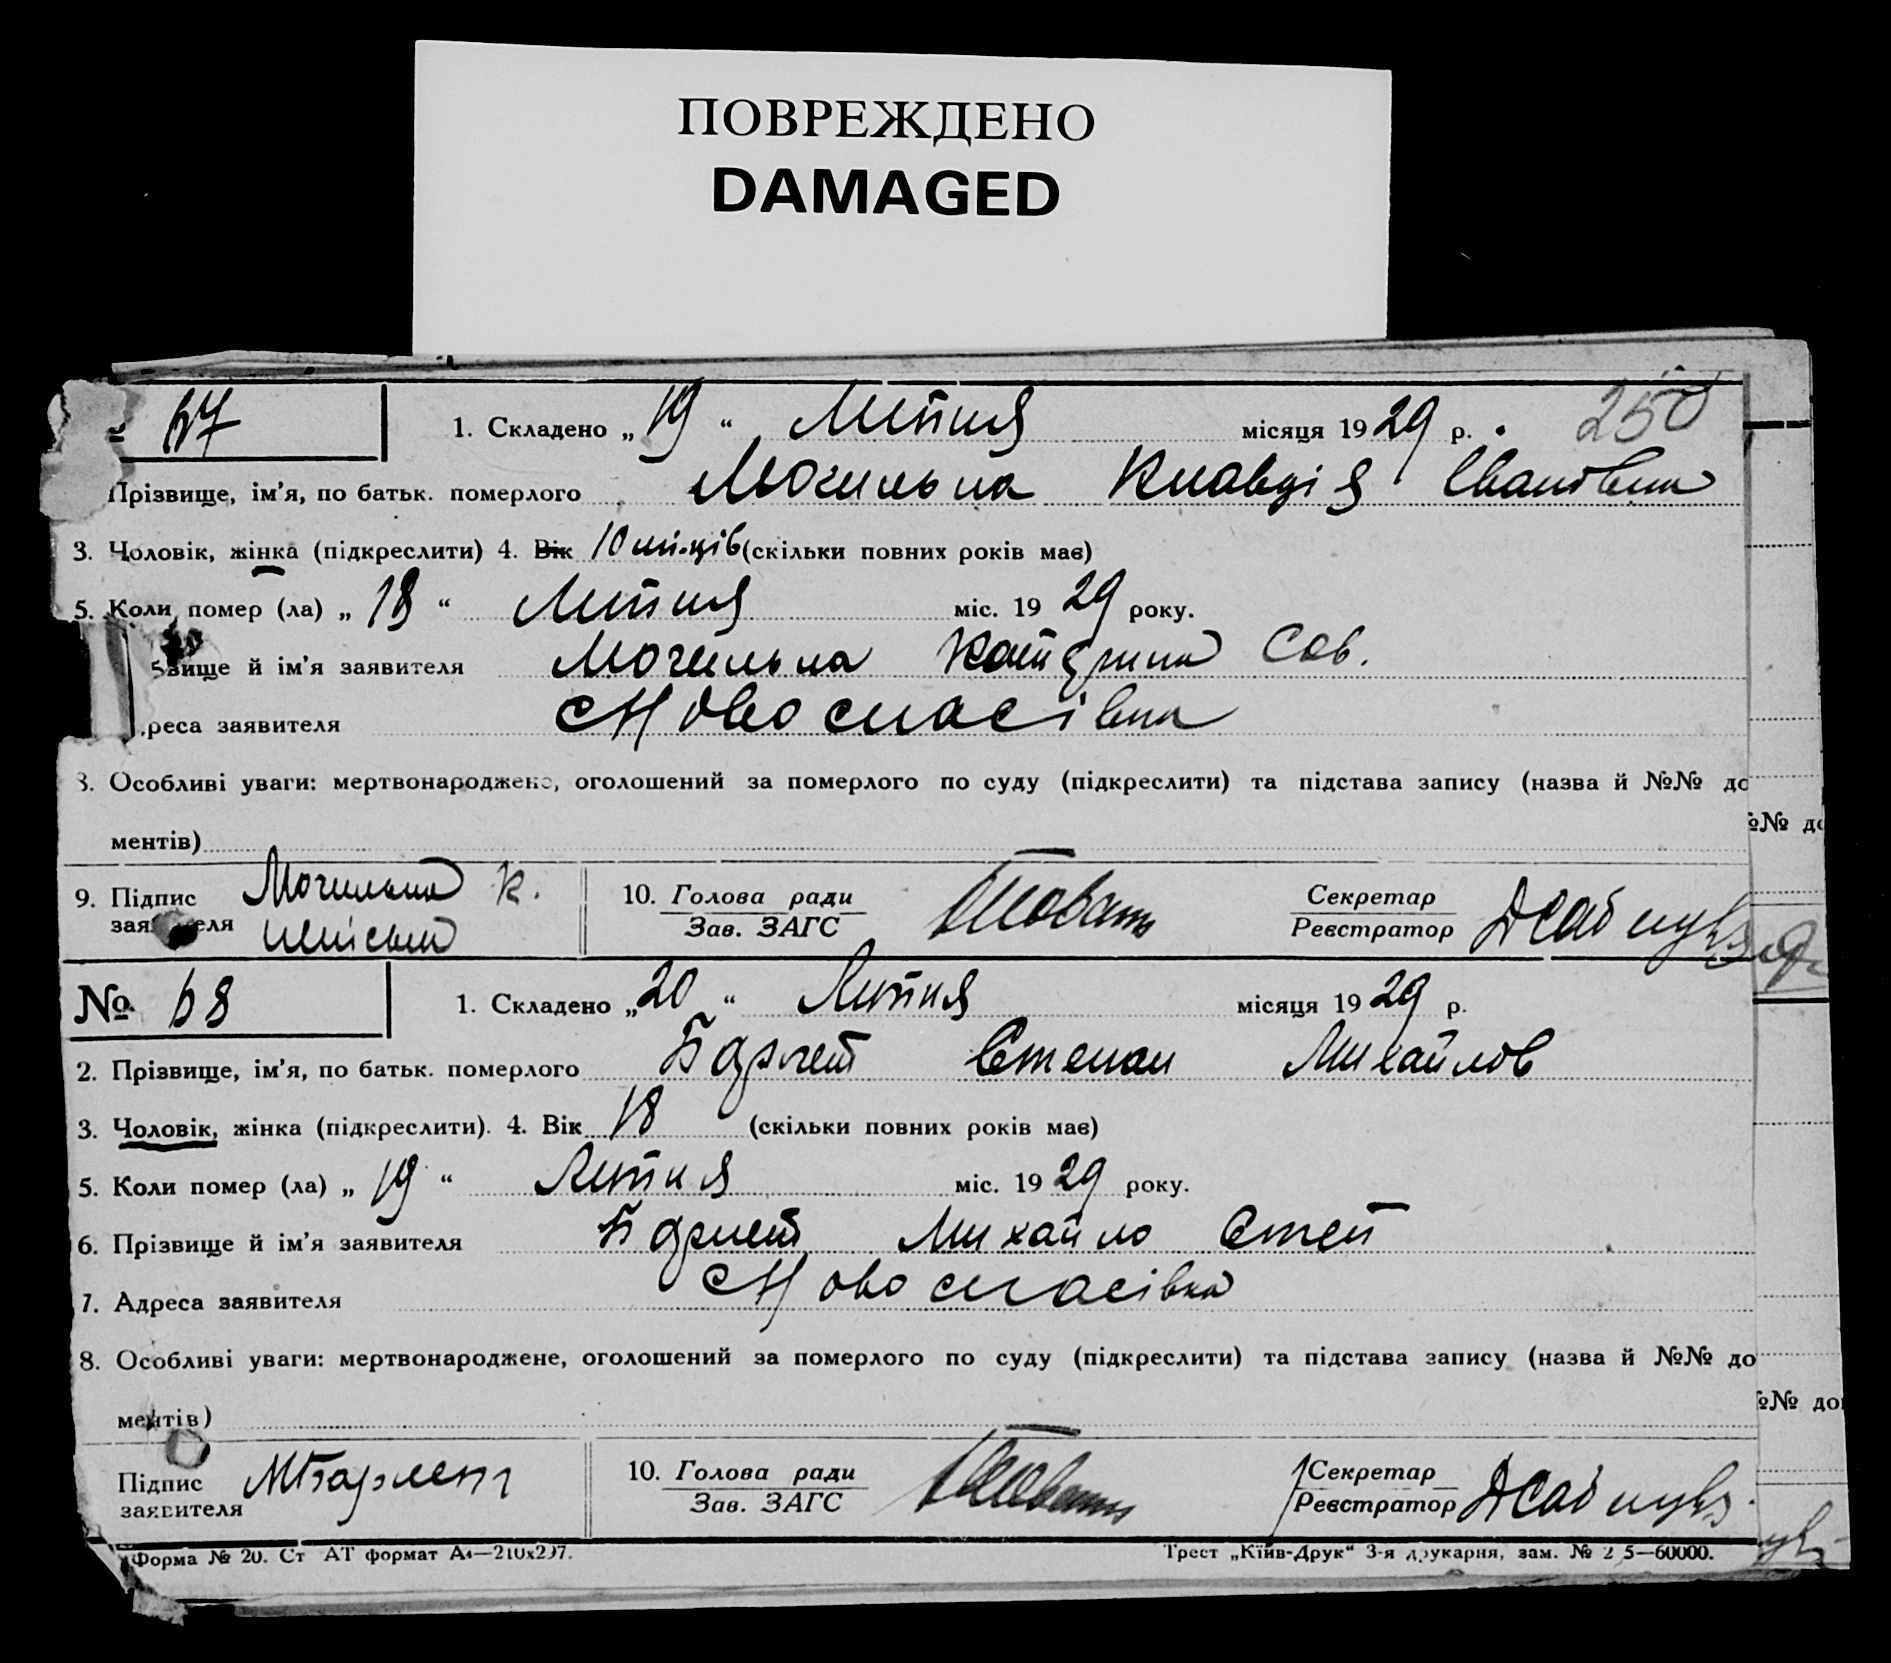 ПОВРЕЖДЕНО
DAMAGED
67 1. Складено „19“ Липня місяця 1929 р. 250
Прізвище, ім’я, по батьк. померлого Могильна Клавдія Івановна
3. Чоловік, жінка (підкреслити) 4. Вік 10 мі-ців (скільки повних років має)
5. Коли помер (ла) „18“ Липня міс. 1929 року.
звище й ім’я заявителя Могильна Катерина Сав.
реса заявителя Новоспасівка
8. Особливі уваги: мертвонароджене, оголошений за померлого по суду (підкреслити) та підстава запису (назва й №№ до
№№ до
ментів)
9. Підпис Могильна К. 10. Голова ради Секретар
заявителя Зав. ЗАГС Реєстратор
№ 68 1. Складено „20“ Липня місяця 1929 р.
2. Прізвище, ім’я, по батьк. померлого Степан Михайлов
3. Чоловік, жінка (підкреслити). 4. Вік 18 (скільки повних років має)
5. Коли помер (ла) „19“ Липня міс. 1929 року.
6. Прізвище й ім’я заявителя Михайло Степ
7. Адреса заявителя Новоспасівка
8. Особливі уваги: мертвонароджене, оголошений за померлого по суду (підкреслити) та підстава запису (назва й №№ до
№№ до
ментів)
Підпис 10. Голова ради Секретар
заявителя Зав. ЗАГС Реєстратор
Форма № 20. Ст АТ формат А4—210х297. Трест „Київ-Друк“ 3-я друкарня, зам. № 2 5—60000.